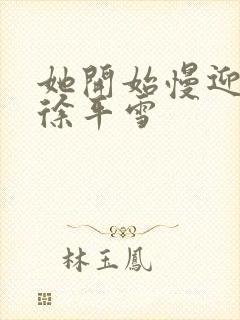 她開始慢迎
徐平雪
林玉鳳